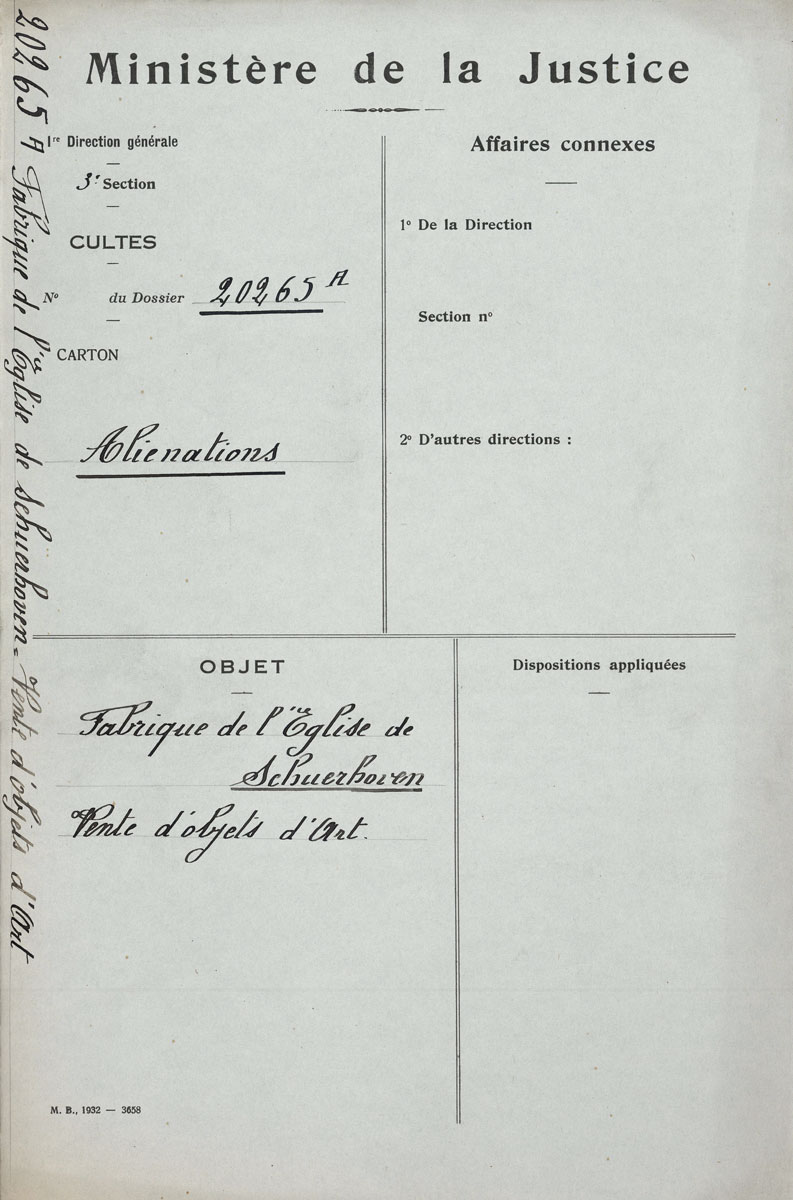 Ministère de la Justice
1re Direction générale
3e Section
CULTES
No du Dossier 20265 A
CARTON
Aliénations
Affaires connexes
1o De la Direction
Section no
2o D'autres directions :
OBJET
Fabrique de l'Eglise de
Schuerhoven
Vente d'objets d'Art.
Dispositions appliquées
M. B., 1932 — 3658
20265 A Fabrique de l'Eglise de Schuerhoven - Vente d'objets d'Art